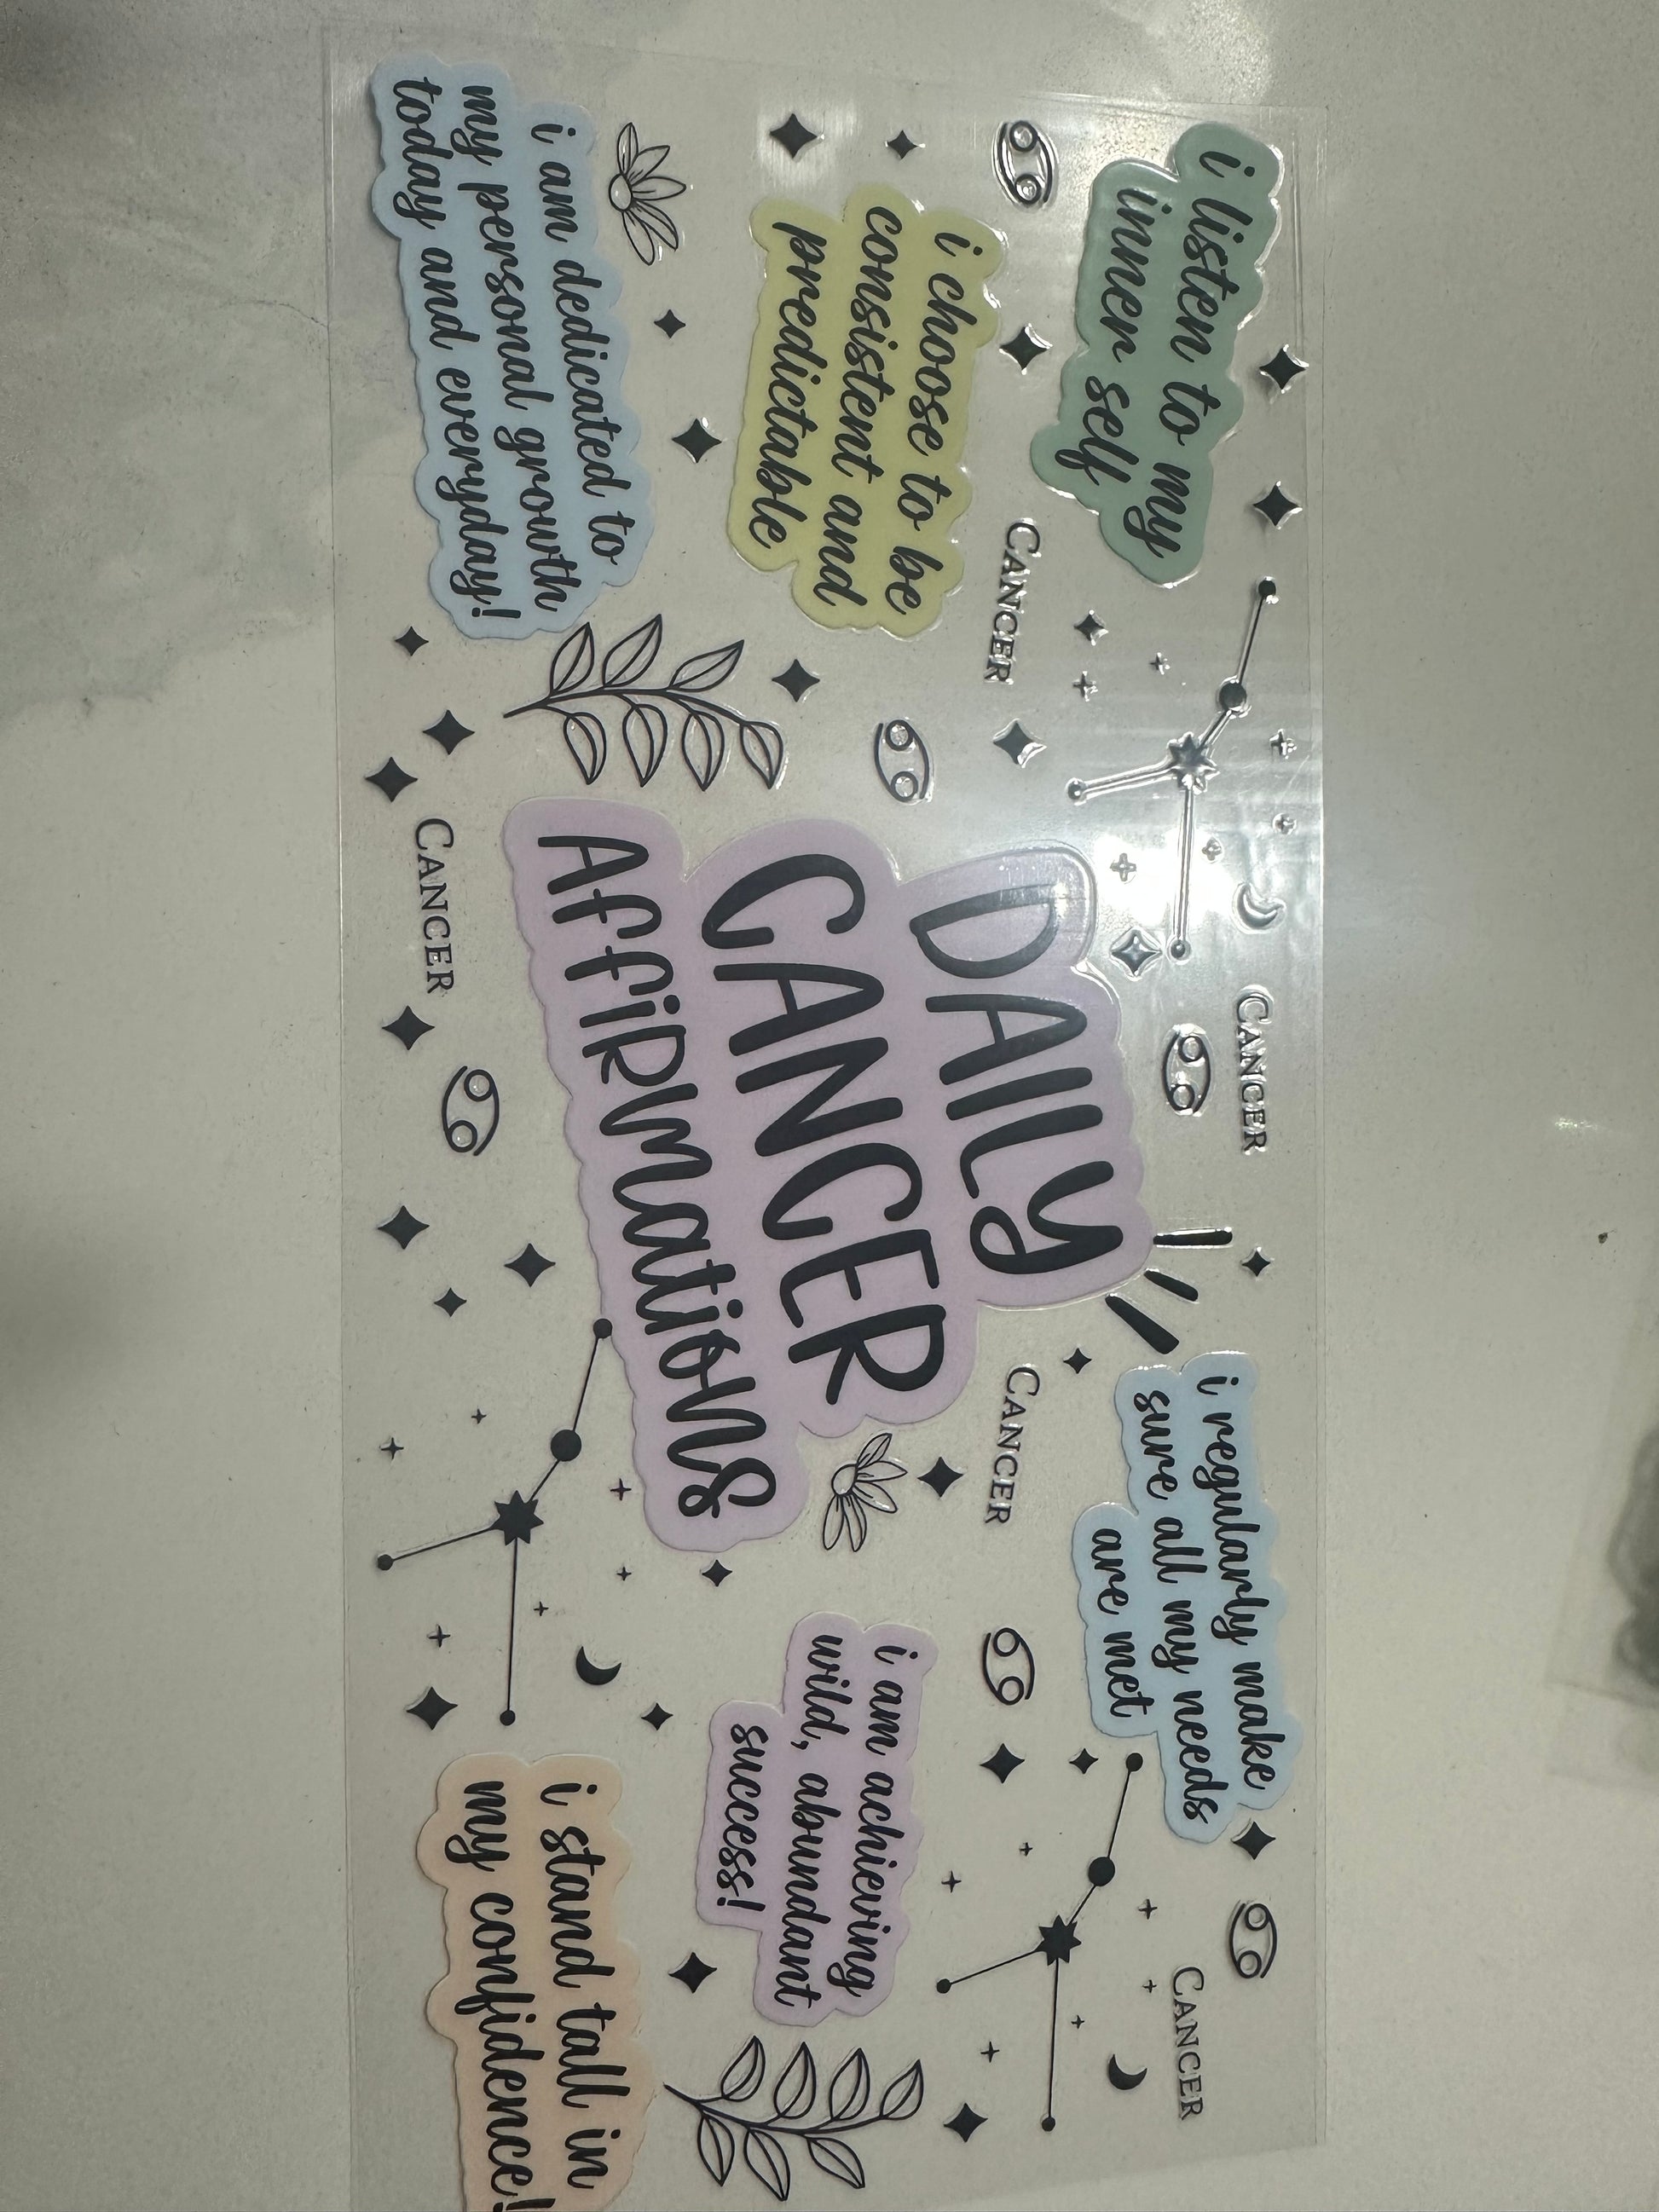 i listen to my
inner self
CANCER
CANCER
i regularly make
sure all my needs
are met
CANCER
i choose to be
consistent and
predictable
CANCER
DAILY
CANCER
AffiRmatioNs
i am achieving
wild, abundant
success!
i am dedicated to
my personal growth
today and everyday!
CANCER
i stand tall in
my confidence!